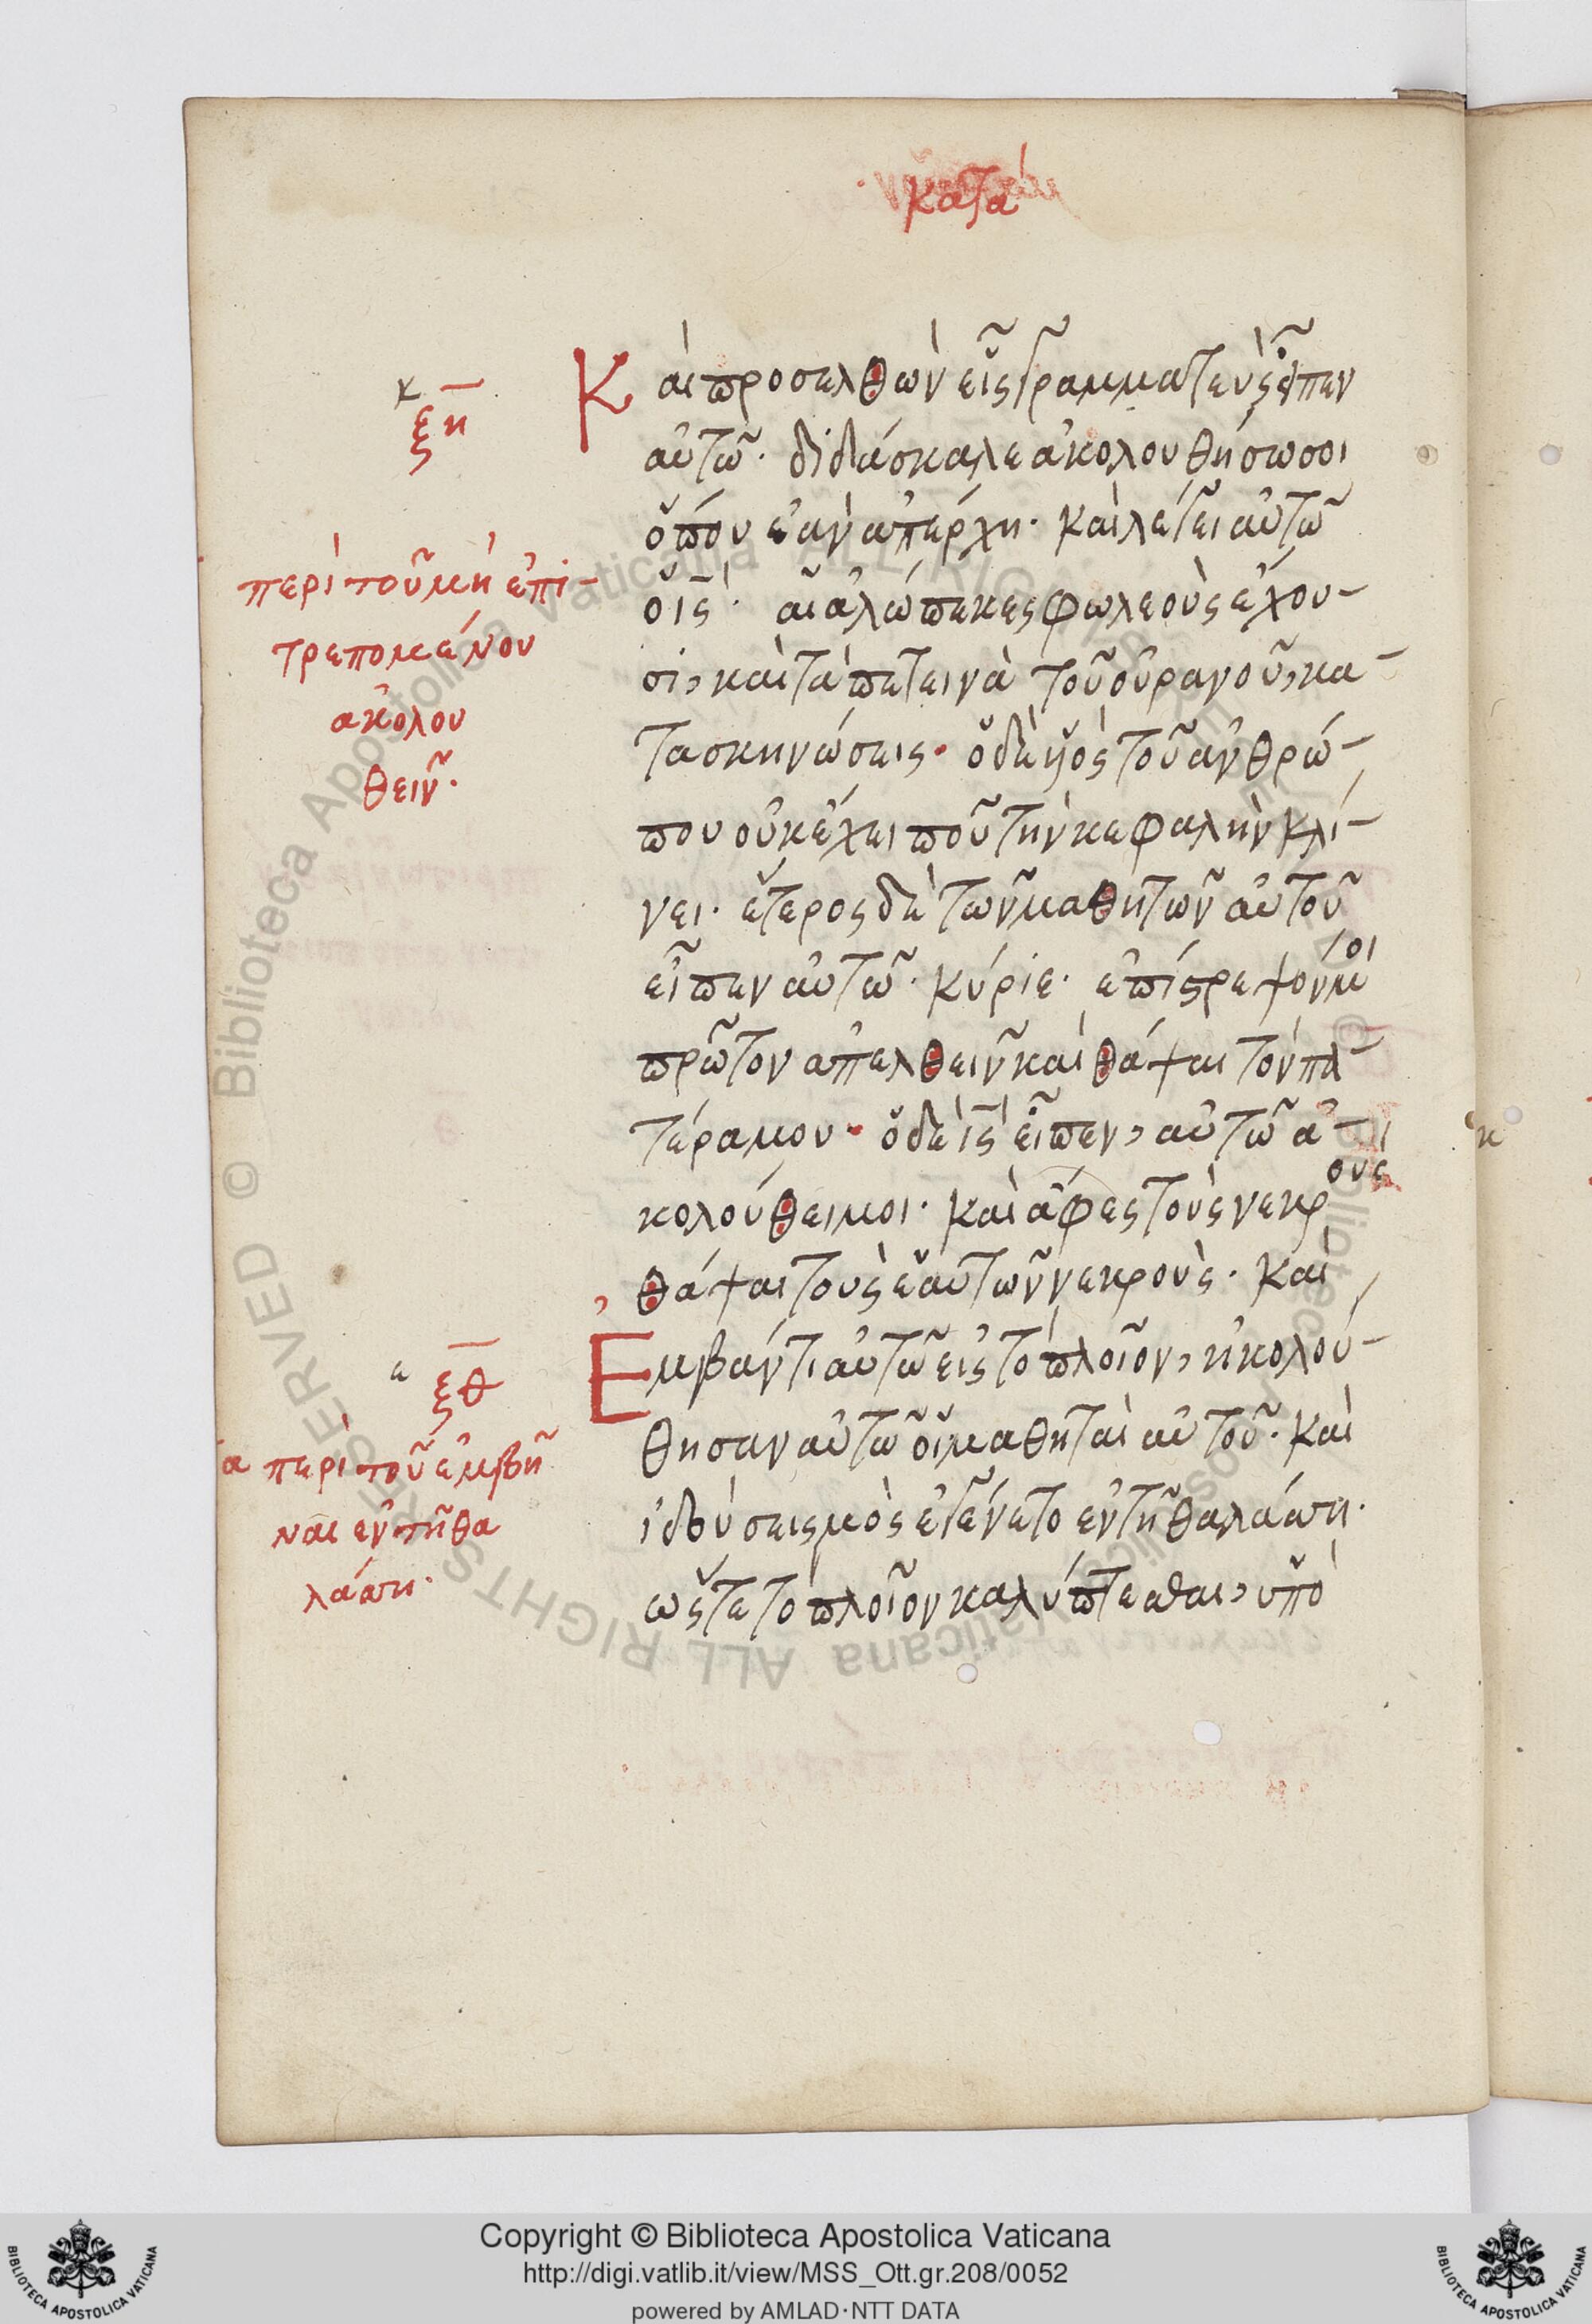 κατα
Καὶ προσελθὼν εἷς γραμματεὺς εἶπεν
αὐτῶ· διδάσκαλε ἀκολουθήσω σοι
ὅπου ἐὰν ἀπέρχη· καὶ λέγει αὐτῶ
ὁ ις· αἱ ἀλώπεκες φωλεοὺς ἔχου-
σι, καὶ τὰ πετεινὰ τοῦ οὐρανοῦ, κα-
τασκηνώσεις· ὁ δὲ υἱὸς τοῦ ἀνθρώ-
που οὐκ ἔχει ποῦ τὴν κεφαλὴν κλί-
νει· ἕτερος δὲ τῶν μαθητῶν αὐτοῦ
εἶπεν αὐτῶ· κύριε· ἐπίστρεψόν μοι
πρῶτον ἀπελθεῖν καὶ θάψαι τὸν πα-
τέρα μου· ὁ δὲ ις εἶπεν, αὐτῶ ἀ-
κολούθει μοι· καὶ ἄφες τοὺς νεκρους
θάψαι τοὺς ἑαυτῶν νεκρούς· καὶ
Ἐμβάντι αὐτῶ εἰς τὸ πλοῖον, ἠκολού-
θησαν αὐτῶ οἱ μαθηταὶ αὐτοῦ· καὶ
ἰδοὺ σεισμὸς ἐγένετο ἐν τῆ θαλάσση·
ὥστε τὸ πλοῖον καλύπτεσθαι, ὑπὸ
ξη
περὶ τοῦ μὴ ἐπι-
τρεπομένου
ἀκολου
θεῖν·
ξθ
ια περὶ τοῦ ἐμβῆ
ναι ἐν τῆ θα
λάσση·
Copyright © Biblioteca Apostolica Vaticana
http://digi.vatlib.it/view/MSS_Ott.gr.208/0052
powered by AMLAD·NTT DATA
BIBLIOTECA APOSTOLICA VATICANA
BIBLIOTECA APOSTOLICA VATICANA
© Biblioteca Apostolica Vaticana ALL RIGHTS RESERVED